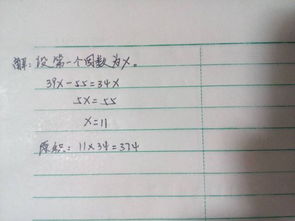 解：设第一个因数为x。
39x-55=34x
5x=55
x=11
原积：11×34=374